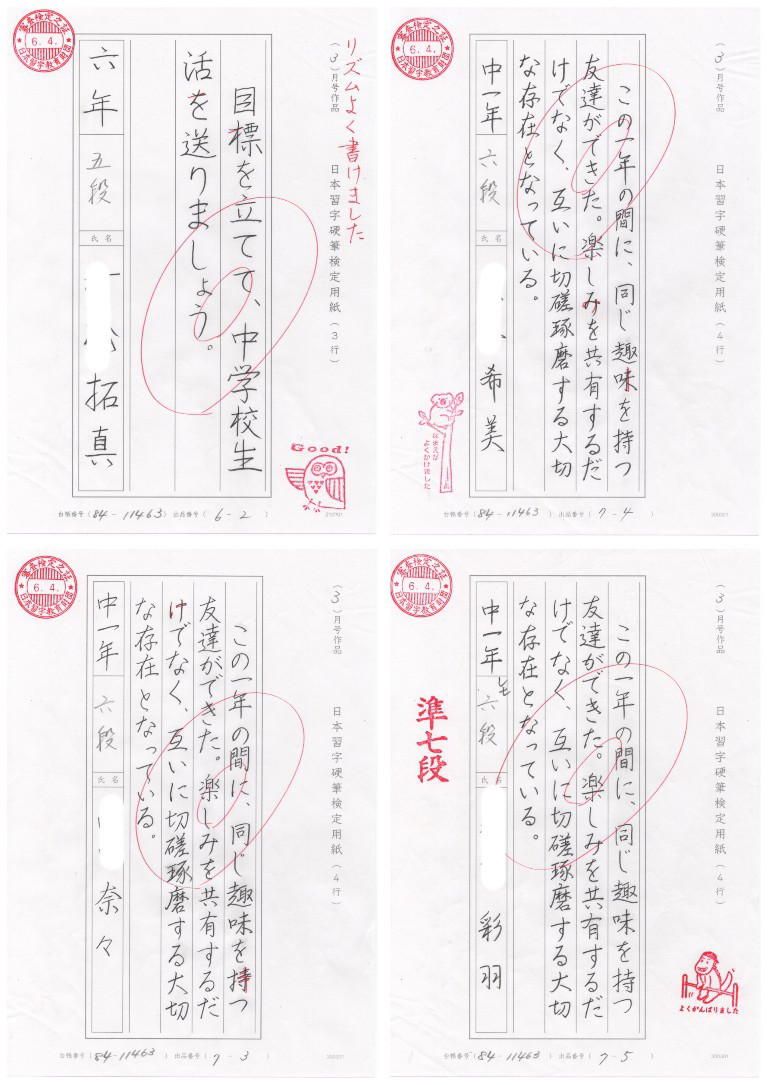 審査検定之証
6. 4.
日本習字教育財団
(3)月号作品
日本習字硬筆検定用紙(3行)
リズムよく書けました
目標を立てて、中学校生
活を送りましょう。
六年
五段
氏名
拓真
Good!
台帳番号(84-11463) 出品番号(6-2)
審査検定之証
6. 4.
日本習字教育財団
(3)月号作品
日本習字硬筆検定用紙(4行)
この一年の間に、同じ趣味を持つ
友達ができた。楽しみを共有するだ
けでなく、互いに切磋琢磨する大切
な存在となっている。
中一年
六段
氏名
希美
なまえが
よくかけました
台帳番号(84-11463) 出品番号(7-4)
審査検定之証
6. 4.
日本習字教育財団
(3)月号作品
日本習字硬筆検定用紙(4行)
この一年の間に、同じ趣味を持つ
友達ができた。楽しみを共有するだ
けでなく、互いに切磋琢磨する大切
な存在となっている。
中一年
六段
氏名
奈々
台帳番号(84-11463) 出品番号(7-3)
審査検定之証
6. 4.
日本習字教育財団
(3)月号作品
日本習字硬筆検定用紙(4行)
この一年の間に、同じ趣味を持つ
友達ができた。楽しみを共有するだ
けでなく、互いに切磋琢磨する大切
な存在となっている。
中一年
六段
氏名
彩羽
準七段
よくがんばりました
台帳番号(84-11463) 出品番号(7-5)